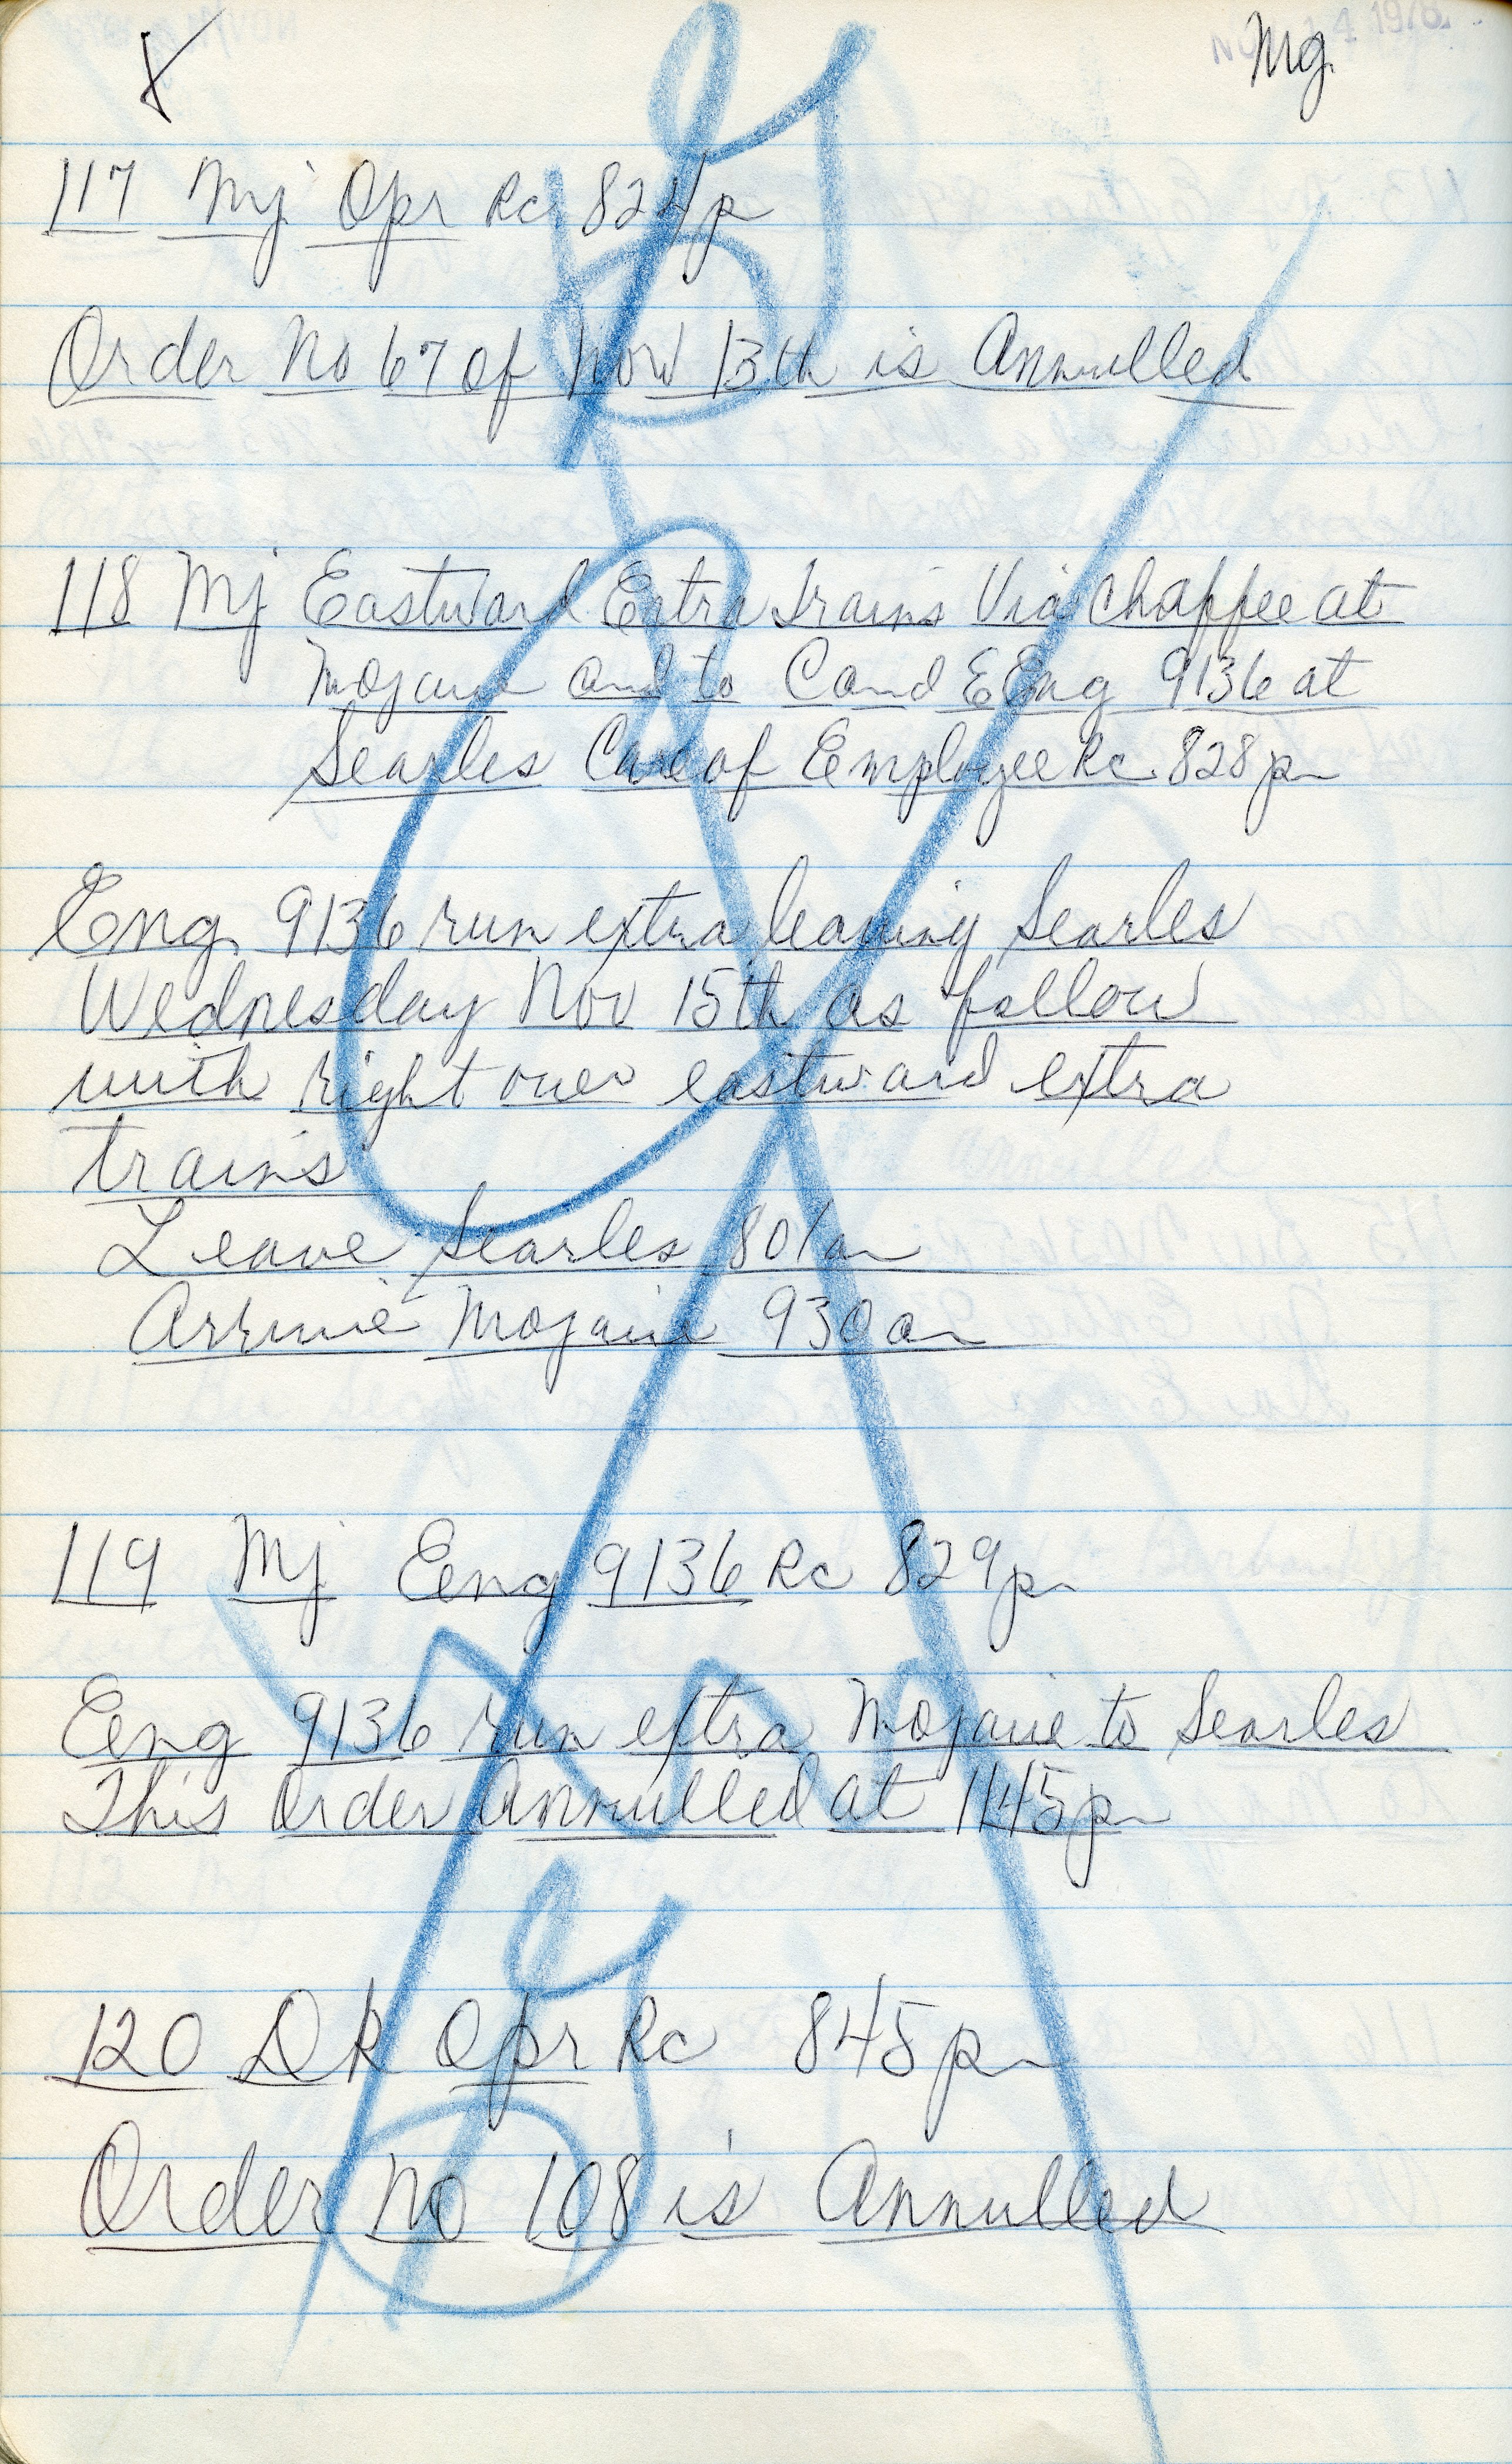 NOV 14 1978
Mg
117 Mj Opr Rc 824p
Order No 67 of Nov 13th is Annulled
118 Mj Eastward Extra trains Via Chaffee at
Mojave and to C and E Eng 9136 at
Searles Care of Employee Rc 828 pm
Eng 9136 run extra leaving Searles
Wednesday Nov 15th as follow
with right over eastward extra
trains
Leave Searles 801am
Arrive Mojave 930am
119 Mj Eeng 9136 Rc 829pm
Eeng 9136 run extra Mojave to Searles
This Order Annulled at 1145pm
120 DR Opr Rc 845pm
Order No 108 is Annulled